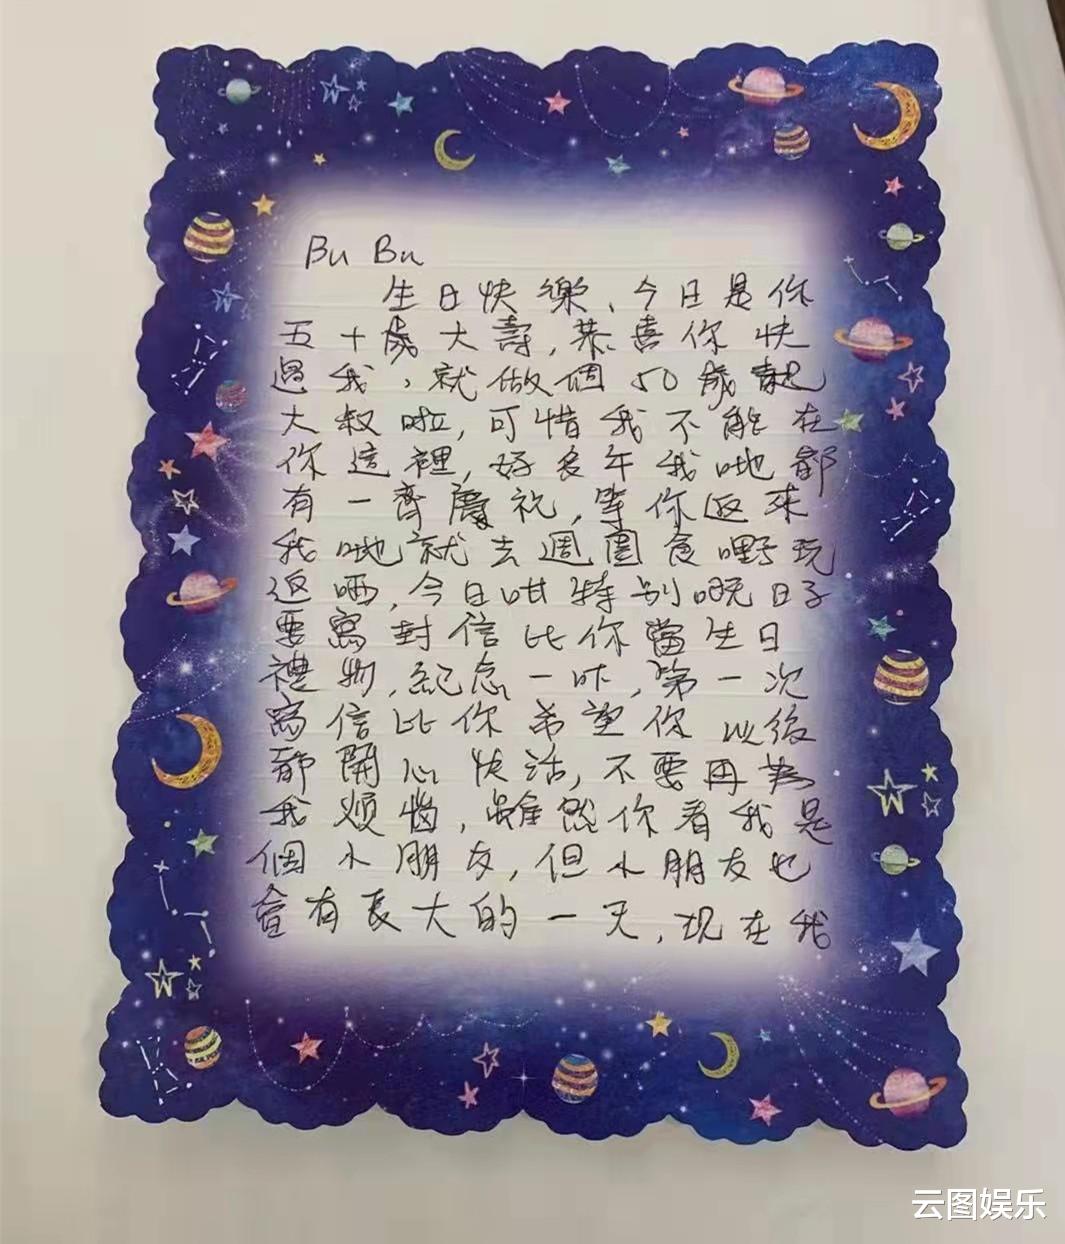 Bu Bu
生日快樂,今日是你
五十歲大壽,恭喜你快
過我,就做個50歲靚
大叔啦,可惜我不能在
你這裡,好多年我哋都
有一齊慶祝,等你返來
我哋就去週圍食嘢玩
返晒,今日咁特別嘅日子
要寫封信比你當生日
禮物,紀念一吓,第一次
寫信比你希望你以後
都開心快活,不要再為
我煩惱,雖然你看我是
個小朋友,但小朋友也
會有長大的一天,現在我
云图娱乐